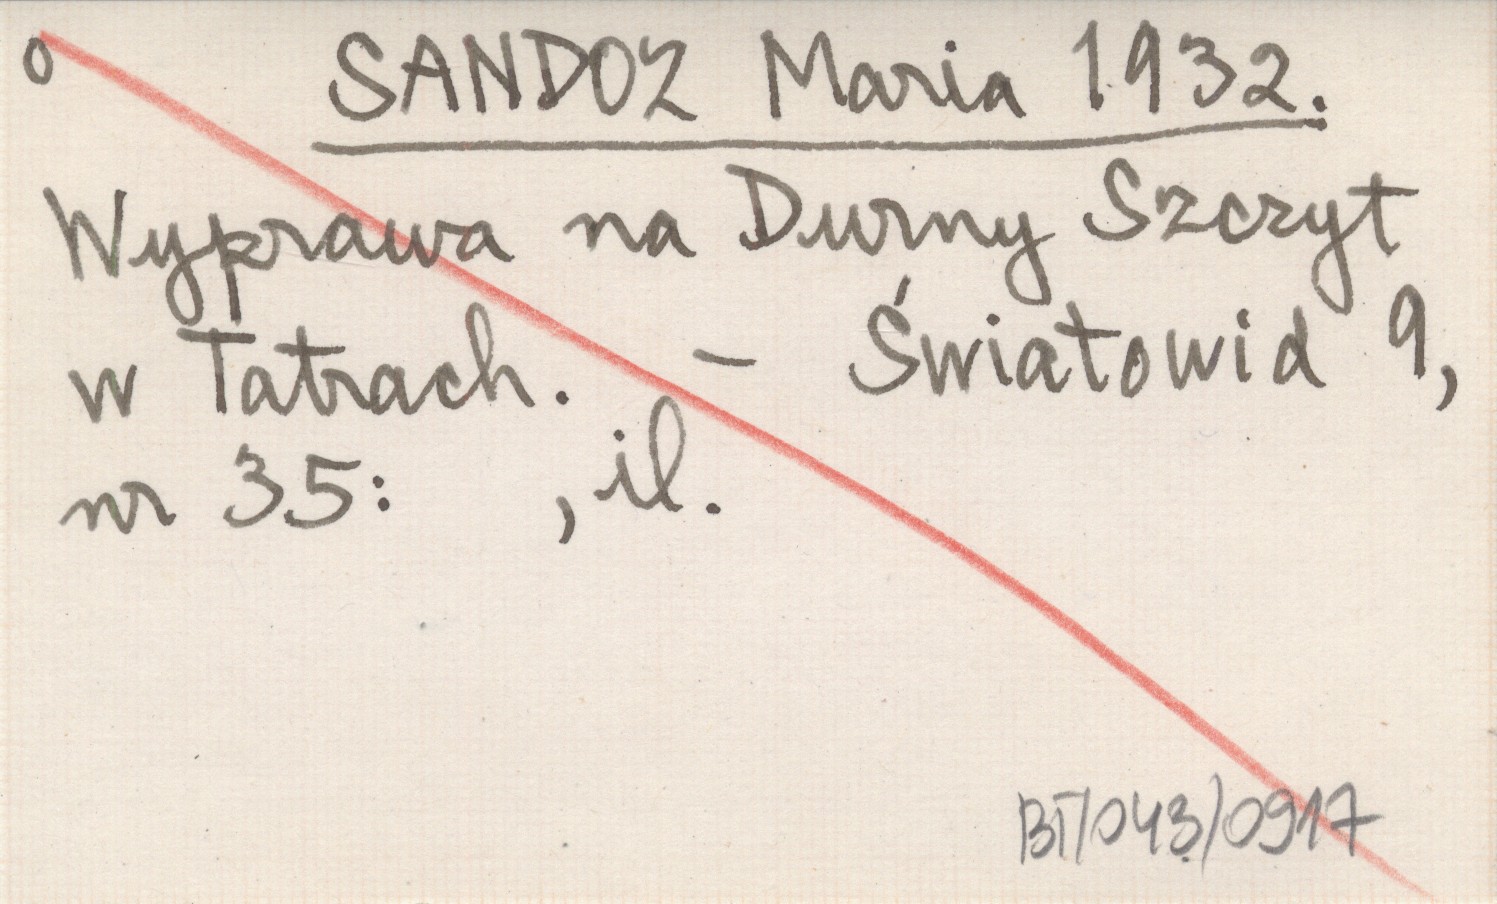 o SANDOZ Maria 1932.
Wyprawa na Durny Szczyt
w Tatrach. – Światowid 9,
nr 35: , il.
BT/043/0917